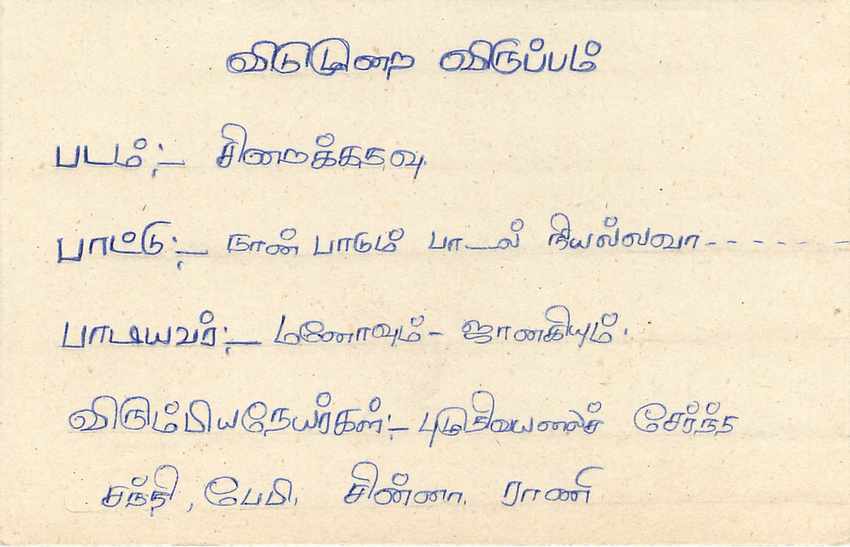 விடுமுறை விருப்பம்
படம்:- சிறைக்கதவு.
பாட்டு:- நான் பாடும் பாடல் நீயல்லவா------
பாடியவர்:- மனோவும் - ஜானகியும்.
விரும்பியநேயர்கள்:- சேர்ந்த
சந்தி, பேபி, சின்னா, ராணி